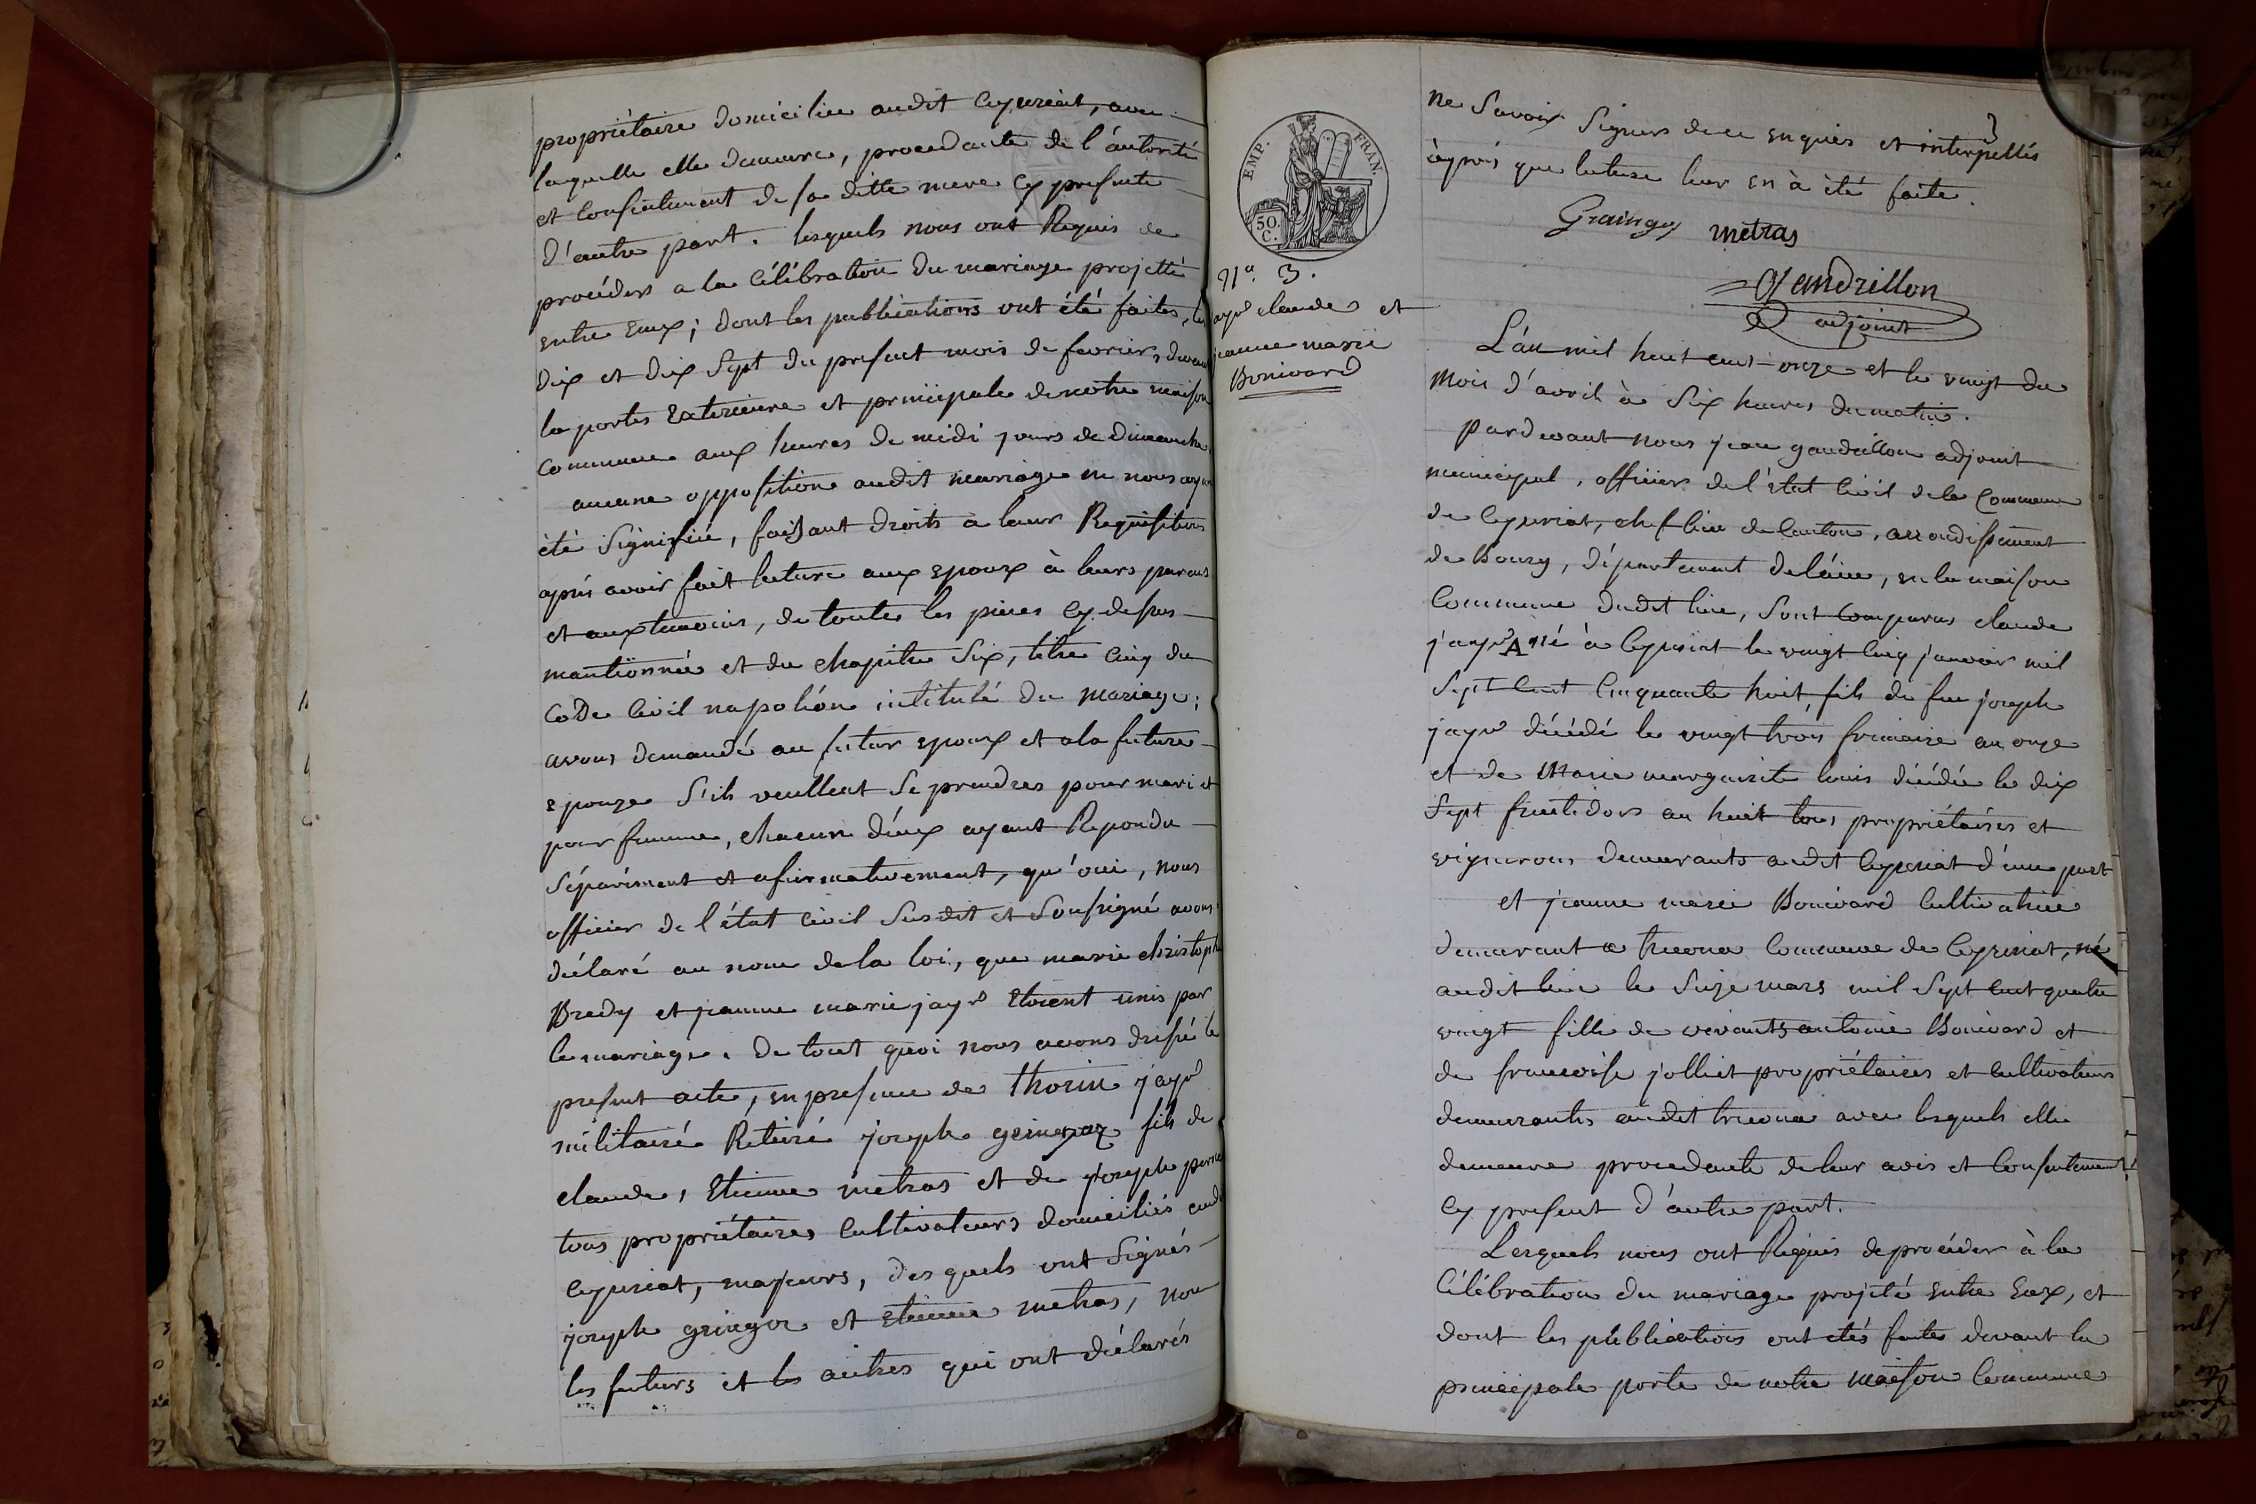 propriétaire domiciliée audit Ceyzeriat, avec
laquelle elle demeure, procedante de l'autorité
et consentement de sa ditte mere cy presente
d'autre part. lesquels nous ont Requis de
procéder a la Célébration du mariage projetté
entre Eux; dont les publications ont été faites, les
dix et dix Sept du present mois de fevrier, devant
la portes Exterieure et principale de notre maison
commune aux heures de midi jours de dimanche
aucune opposition audit mariage ne nous ayant
été Signifiée, faisant droits a leur Requisitions
après avoir fait lecture aux epoux à leurs parens
et aux temoins, de toutes les pieces cy dessus
mantionnée et du chapitre Six, titre Cinq du
Code Civil napoléon intitulé du mariage;
avons demandé au futur epoux et a la future
epouze S'ils veullent Se prendres pour mari et
pour femme, chacun d'eux ayant Repondu
Séparément et afirmativement, qu'oui, nous
officier de l'état Civil Susdit et Soussigné avons
déclaré au nom de la loi, que marie christophe
Bredy et jeanne marie jayr Etoient unis par
le mariage. De tout quoi nous avons dressé le
present acte, en presence de thorin jayr
militaire Retiré joseph gringoz fils de
claude, Etienne metras et de joseph
tous propriétaires Cultivateurs domiciliés audit
Ceyzeriat, majeurs, des quels ont Signés
joseph gringoz et Etienne metras, non
les futurs et les autres qui ont déclarés
ne Savoir Signers de ce enquis et interpellés
3
après que lecture leur en à été faite.
Graingoz metras
Gandrillon
adjoint
EMP. FRAN.
50. C.
N.º 3.
jayr claude et
jeanne marie
Bonivard
L'an mil huit cent onze et le vingt du
mois d'avril à Six heures du matin.
pardevant nous jean gandrillon adjoint
municipal, officier de l'état Civil de la Commune
de Ceyzeriat, chef lieu de Canton, arrondissement
de Bourg, département de l'ain, en la maison
Commune dudit lieu, Sont comparus claude
jayr A né à Ceyzeriat le vingt Cinq janvier mil
Sept Cent Cinquante huit, fils de feu joseph
jayr décédé le vingt trois frimaire an onze
et de Marie marguerite louis décédée le dix
Sept fructidors an huit tous propriétaires et
vignerons demeurants audit Ceyzeriat d'une part
et jeanne marie Bonivard Cultivatrice
demeurant a treona Commune de Ceyzeriat, né
audit lieu le Seize mars mil Sept cent quatre
vingt fille de vivants antoine Bonivard et
de francoise jolliet propriétaires et Cultivateurs
demeurants audit treona avec lesquels elle
demeure procedante de leur avis et Consentement
cy present d'autre part.
Lesquels nous ont Requis de procéder à la
Célébration du mariage projeté entre Eux, et
dont les publications ont étés faites devant la
principale porte de notre maison Commune